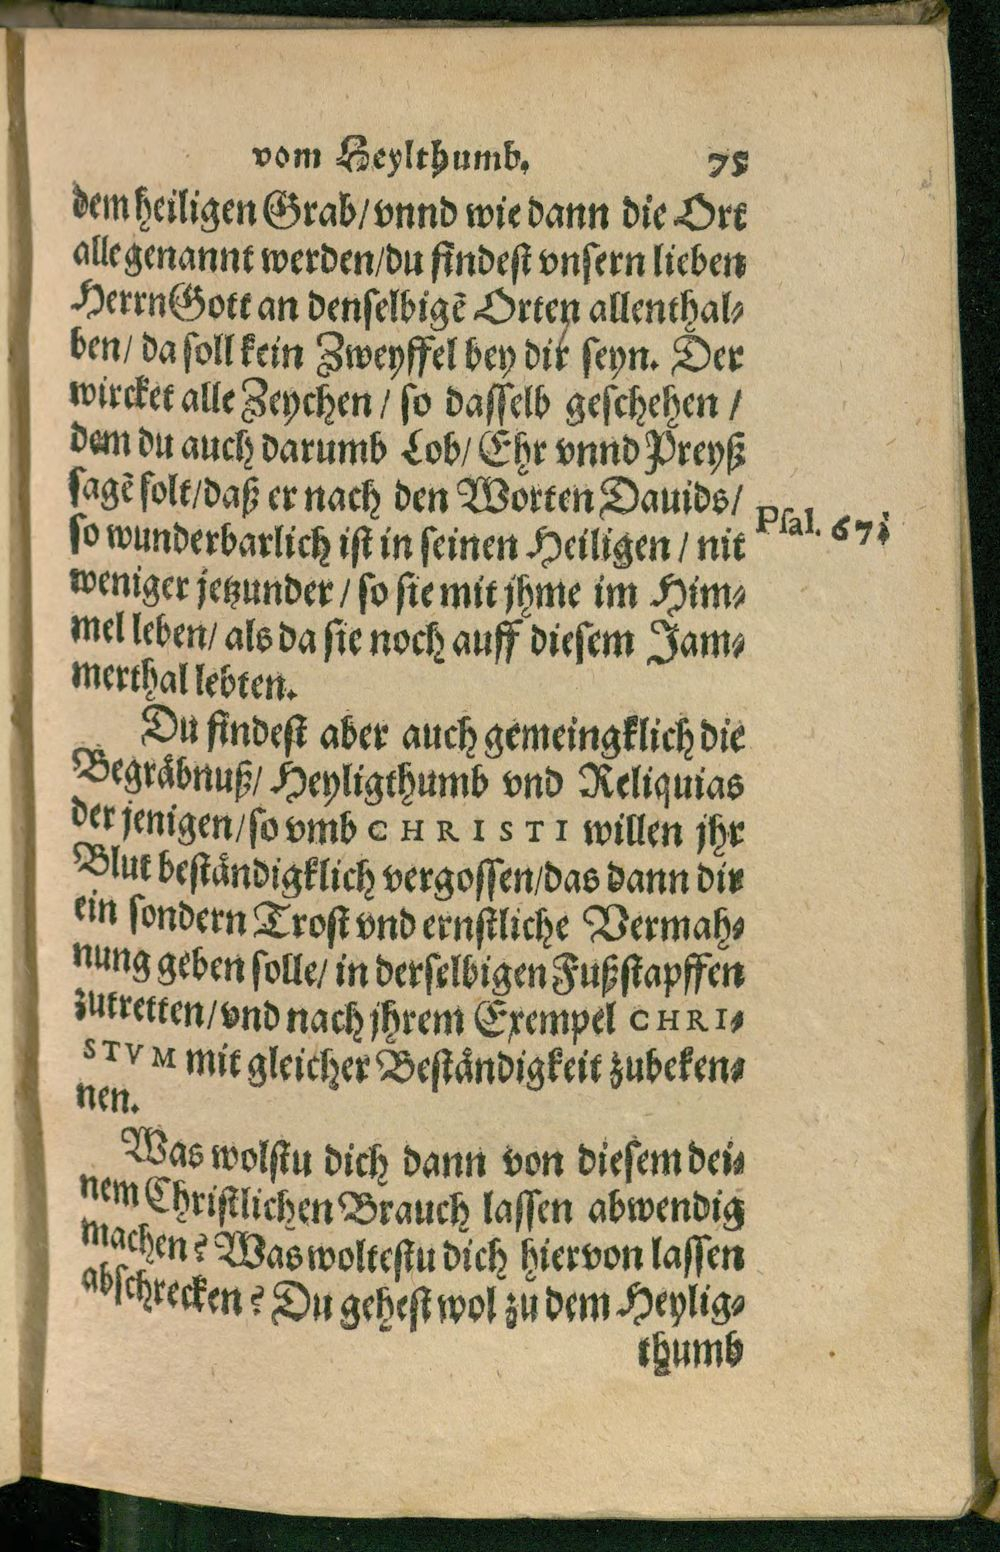 vom Heylthumb. 75
dem heiligen Grab/ vnnd wie dann die Ort
alle genannt werden/du findest vnsern lieben
Herrn Gott an denselbigẽ Orten allenthal⸗
ben/ da soll kein Zweyffel bey dir seyn. Der
wircket alle Zeychen / so dasselb geschehen /
dem du auch darumb Lob/ Ehr vnnd Preyß
sagẽ solt/daß er nach den Worten Dauids/
Psal. 67.
so wunderbarlich ist in seinen Heiligen / nit
weniger jetzunder / so sie mit jhme im Him⸗
mel leben/ als da sie noch auff diesem Jam⸗
merthal lebten.
Du findest aber auch gemeingklich die
Begräbnuß/ Heyligthumb vnd Reliquias
der jenigen/so vmb CHRISTI willen jhr
Blut beständigklich vergossen/das dann dir
ein sondern Trost vnd ernstliche Vermah⸗
nung geben solle/ in derselbigen Fußstapffen
zutretten/vnd nach jhrem Exempel CHRI⸗
STVM mit gleicher Beständigkeit zubeken⸗
nen.
Was wolstu dich dann von diesem dei⸗
nem Christlichen Brauch lassen abwendig
machen? Was woltestu dich hiervon lassen
abschrecken? Du gehest wol zu dem Heylig⸗
thumb